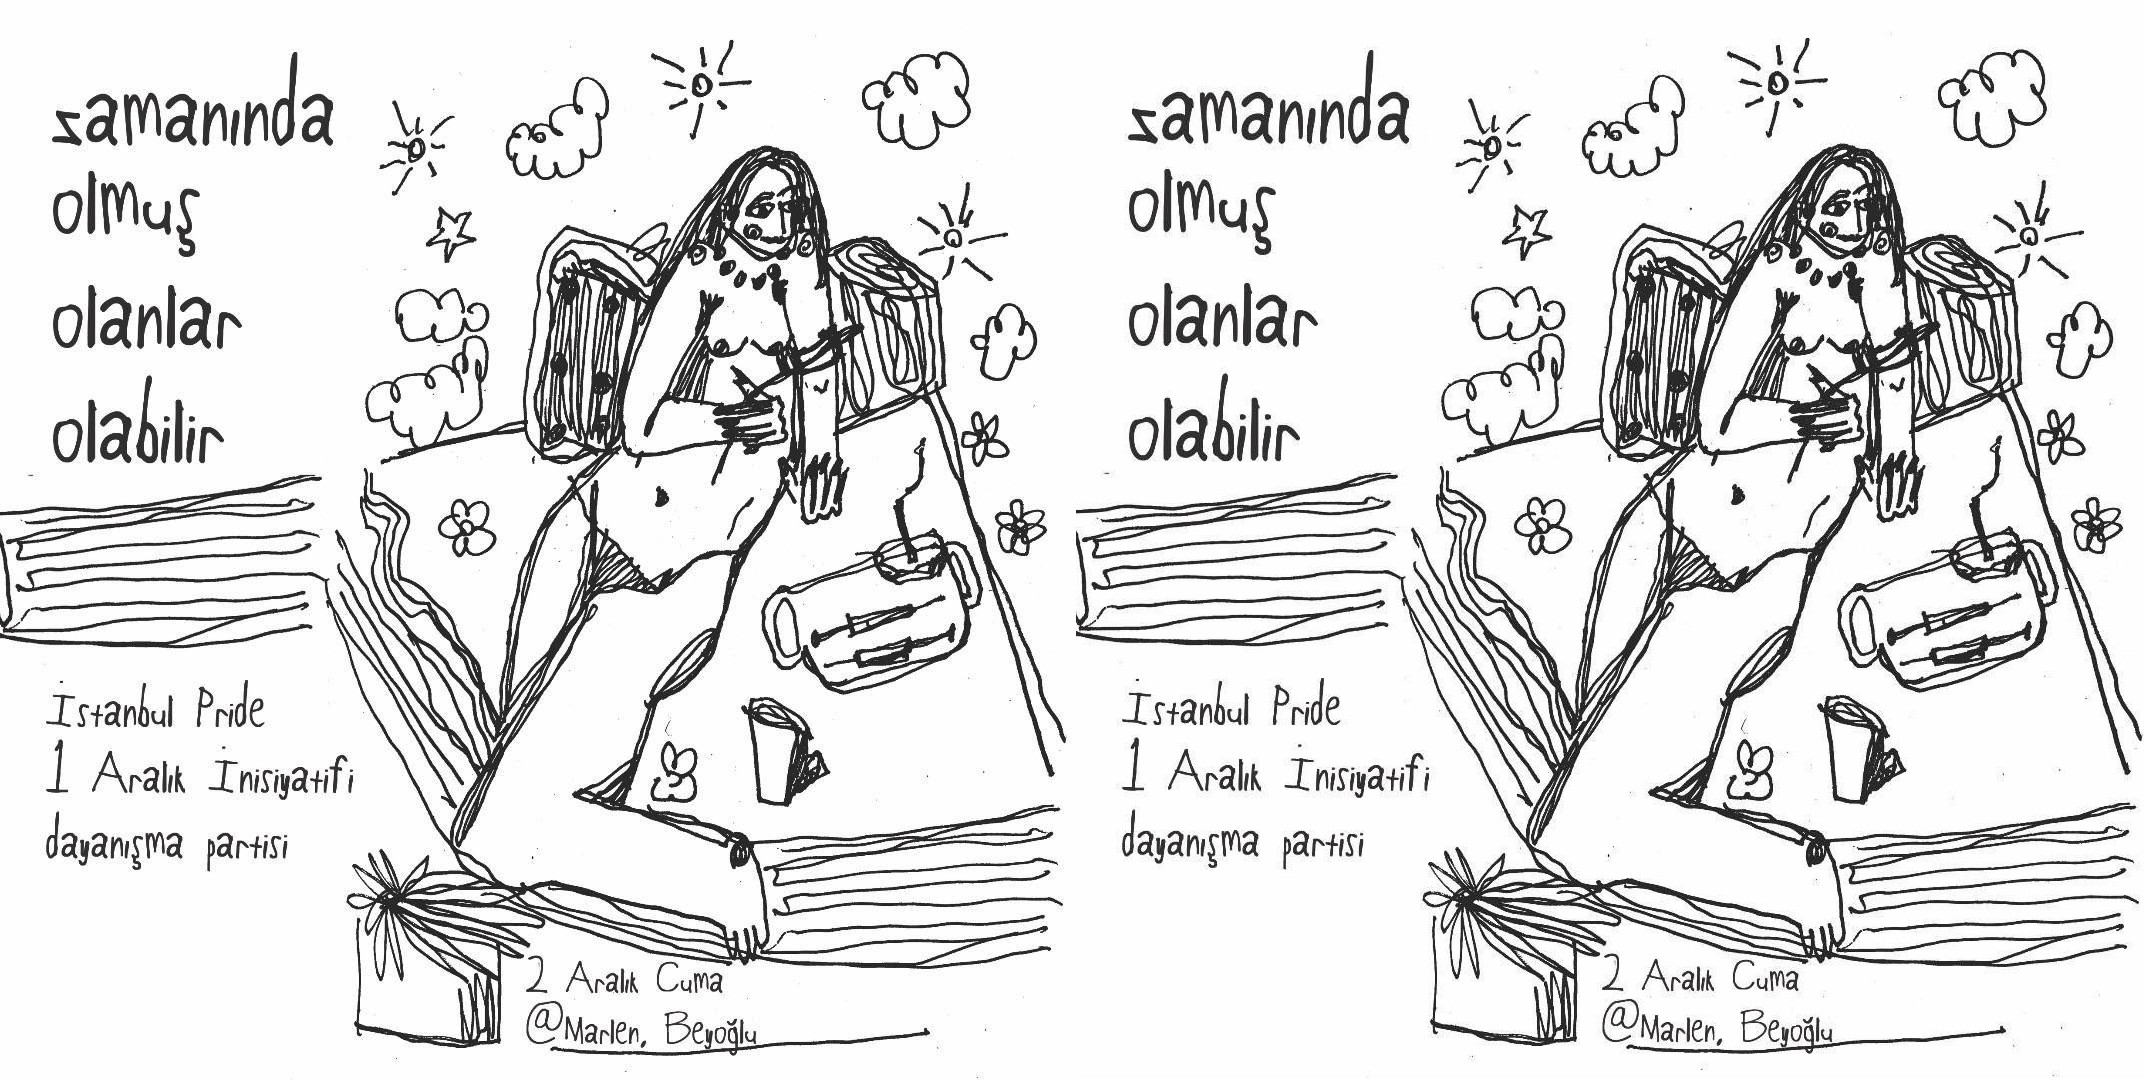 zamanında
olmuş
olanlar
olabilir
İstanbul Pride
1 Aralık İnisiyatifi
dayanışma partisi
2 Aralık Cuma
@Marlen, Beyoğlu
zamanında
olmuş
olanlar
olabilir
İstanbul Pride
1 Aralık İnisiyatifi
dayanışma partisi
2 Aralık Cuma
@Marlen, Beyoğlu